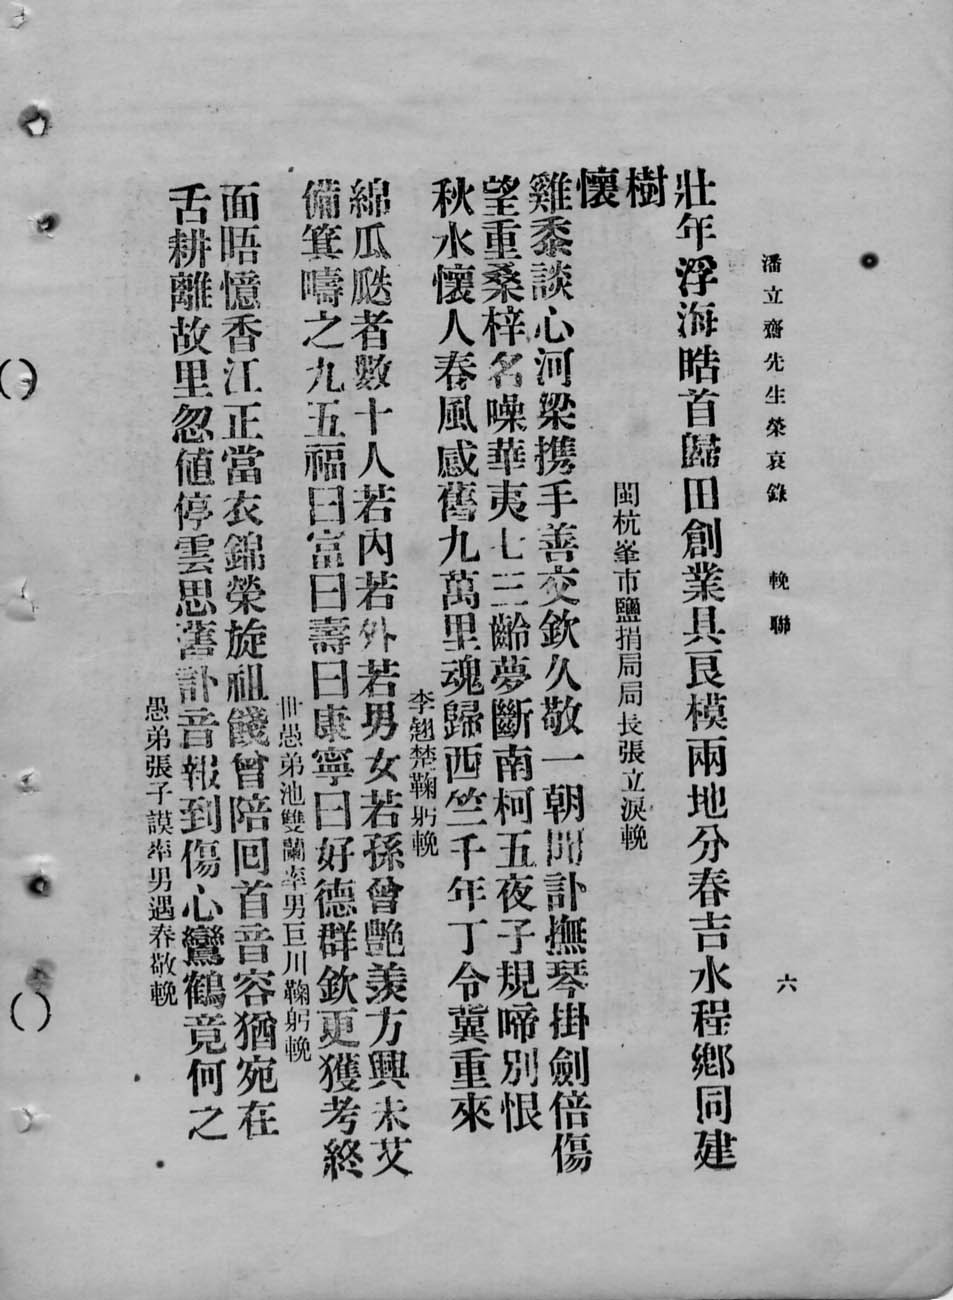 潘立齋先生榮哀錄　輓聯　六
壯年浮海皓首歸田創業具良模兩地分春吉水程鄉同建
樹
雞黍談心河梁携手善交欽久敬一朝聞訃撫琴掛劍倍傷
懷
閩杭峯市鹽捐局局長張立淚輓
望重桑梓名噪華夷七三齡夢斷南柯五夜子規啼別恨
秋水懷人春風感舊九萬里魂歸西竺千年丁令冀重來
李翹楚鞠躬輓
綿瓜瓞者數十人若內若外若男女若孫曾艷羨方興未艾
備箕疇之九五福曰富曰壽曰康寧曰好德群欽更獲考終
世愚弟池雙蘭率男巨川鞠躬輓
面晤憶香江正當衣錦榮旋祖餞曾陪回首音容猶宛在
舌耕離故里忽値停雲思舊訃音報到傷心鸞鶴竟何之
愚弟張子謨率男遇春敬輓